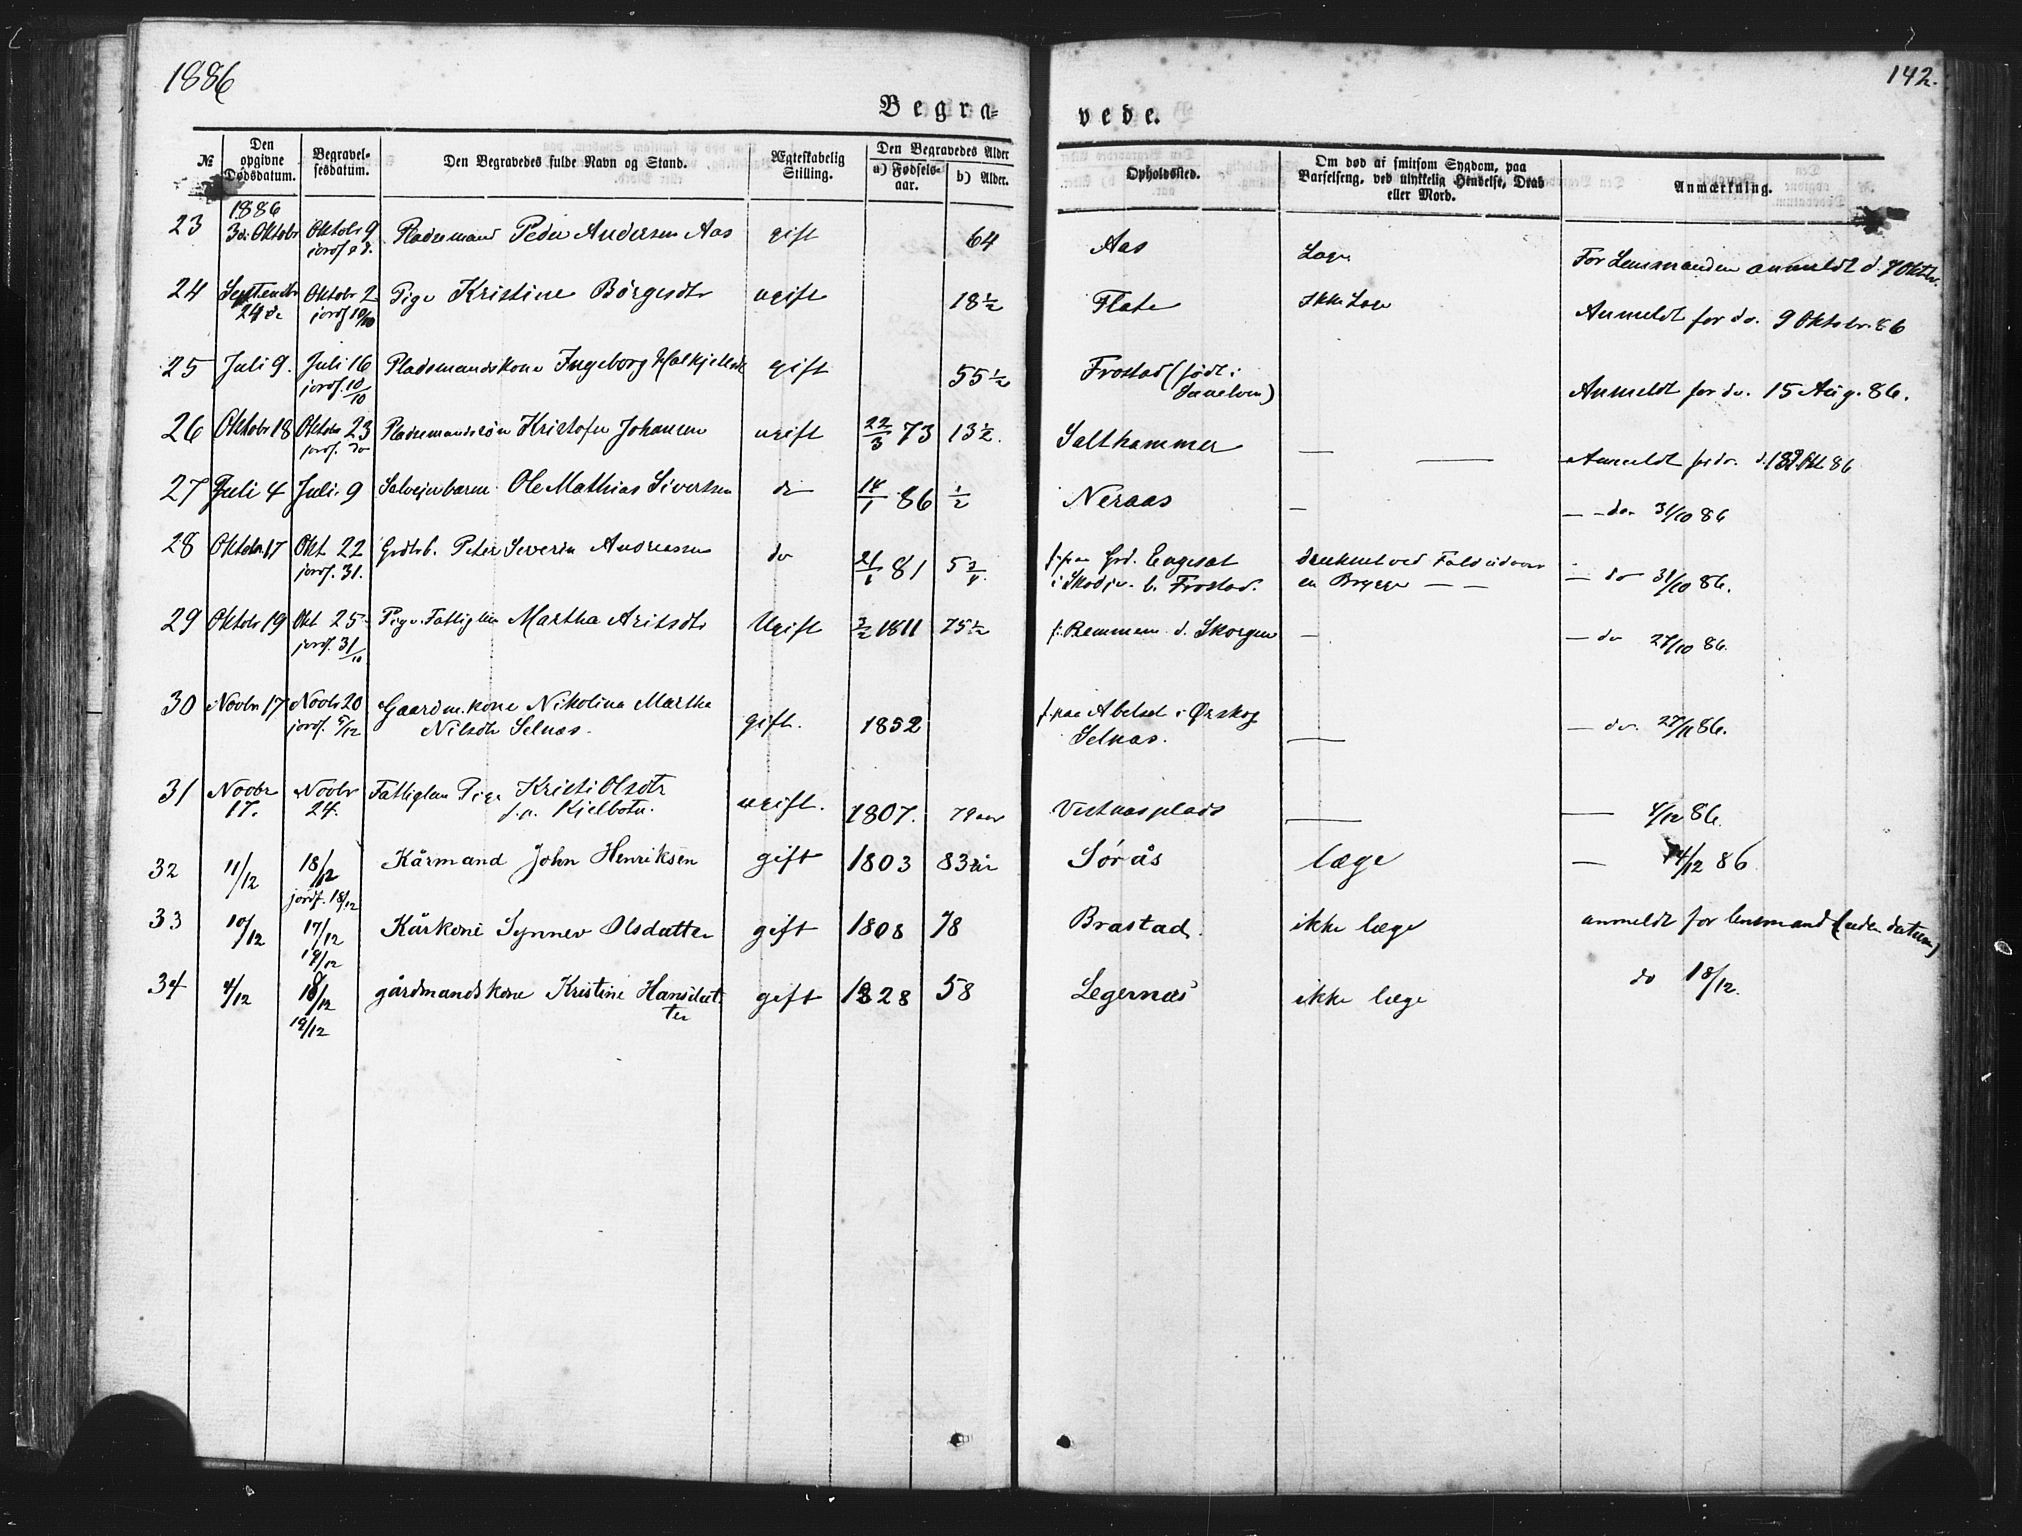 1886
142.
Begra-
vede.
№ | Den opgivne Dødsdatum. | Begravel-sesdatum. | Den Begravedes fulde Navn og Stand. | Ægteskabelig Stilling. | Den Begravedes Alder a) Fødsels-aar. | b) Alder. | Opholdssted. | Om død af smitsom Sygdom, paa Barselseng, ved ulykkelig Hendelse, Drab eller Mord. | Anmærkning.
23 | 1886 3di Oktobr | Oktobr 9 jordf. s. d. | Pladsmand Peder Andersen Aas | gift | | 64 | Aas | Læge | For Lensmanden anmeldt d. 7 Oktbr.
24 | Septembr 24de | Oktobr 2 jordf 10/10 | Pige Kristine Börgesdtr | ugift | | 18½ | Flate | Ikke Læge | Anmeldt for do. 9 Oktobr. 86
25 | Juli 9. | Juli 16 jordf. 10/10 | Pladsmandskone Ingeborg | gift | | 55½ | Frostad (født i | | Anmeldt for do. 15 Aug. 86.
26 | Oktobr 18 | Oktobr 23 jordf. do | Pladsmandssön Kristofer Johansen | ugift | 22/3 73 | 13½. | Salthammer | — — | Anmeldt for do. 86
27 | Juli 4 | Juli 9 | Selveierbarn Ole Mathias Sivertsen | do | 14/1 86 | ½ | Neraas | — | — do. 31/10 86
28 | Oktobr 17 | Okt 22 jordf. 31. | Grdbr. b. Peter Severin Andreassen | do | 21/1 81 | 5 3/4. | f. paa Grd. Engeset i Skodje. b. Frostad. | druknet ved Fald udover en Brygge — — | — do 31/10 86.
29 | Oktobr 19 | Okt 25 jordf. 31/10 | Pige. Fattiglem Martha Aritsdtr | Ugift | 3/2 1811 | 75½ | f. Remmem d. Skorgen | — | — do 27/10 86.
30 | Novbr 17 | Novbr 20 jordf. 5/12 | Gaardm. kone Nikolina Martha Nilsdtr Selnæs. | gift. | 1852 | | f. paa Abelset i Ørskog Selnæs. | — | — do. 27/11 86.
31 | Novbr 17. | Novbr 24. | Fattiglem Pige Kristi Olsdtr f. p. Kjelbotn. | ugift. | 1807. | 79 aar | Vestnæsplads | — | — 4/12 86.
32 | 11/12 | 18/12 jordf. 18/12 | Kårmand John Henriksen | gift | 1803 | 83 år | Sørås | læge | — 14/12 86
33 | 10/12 | 17/12 19/12 | Kårkone Synnev Olsdatter | gift | 1808 | 78 | Brastad. | ikke læge | anmeldt for lensmand (uden datum)
34 | 4/12 | 18/12 19/12 | gårdmandskone Kristine Hansdatter | gift | 1828 | 58 | Legernæs | ikke læge | do 18/12.